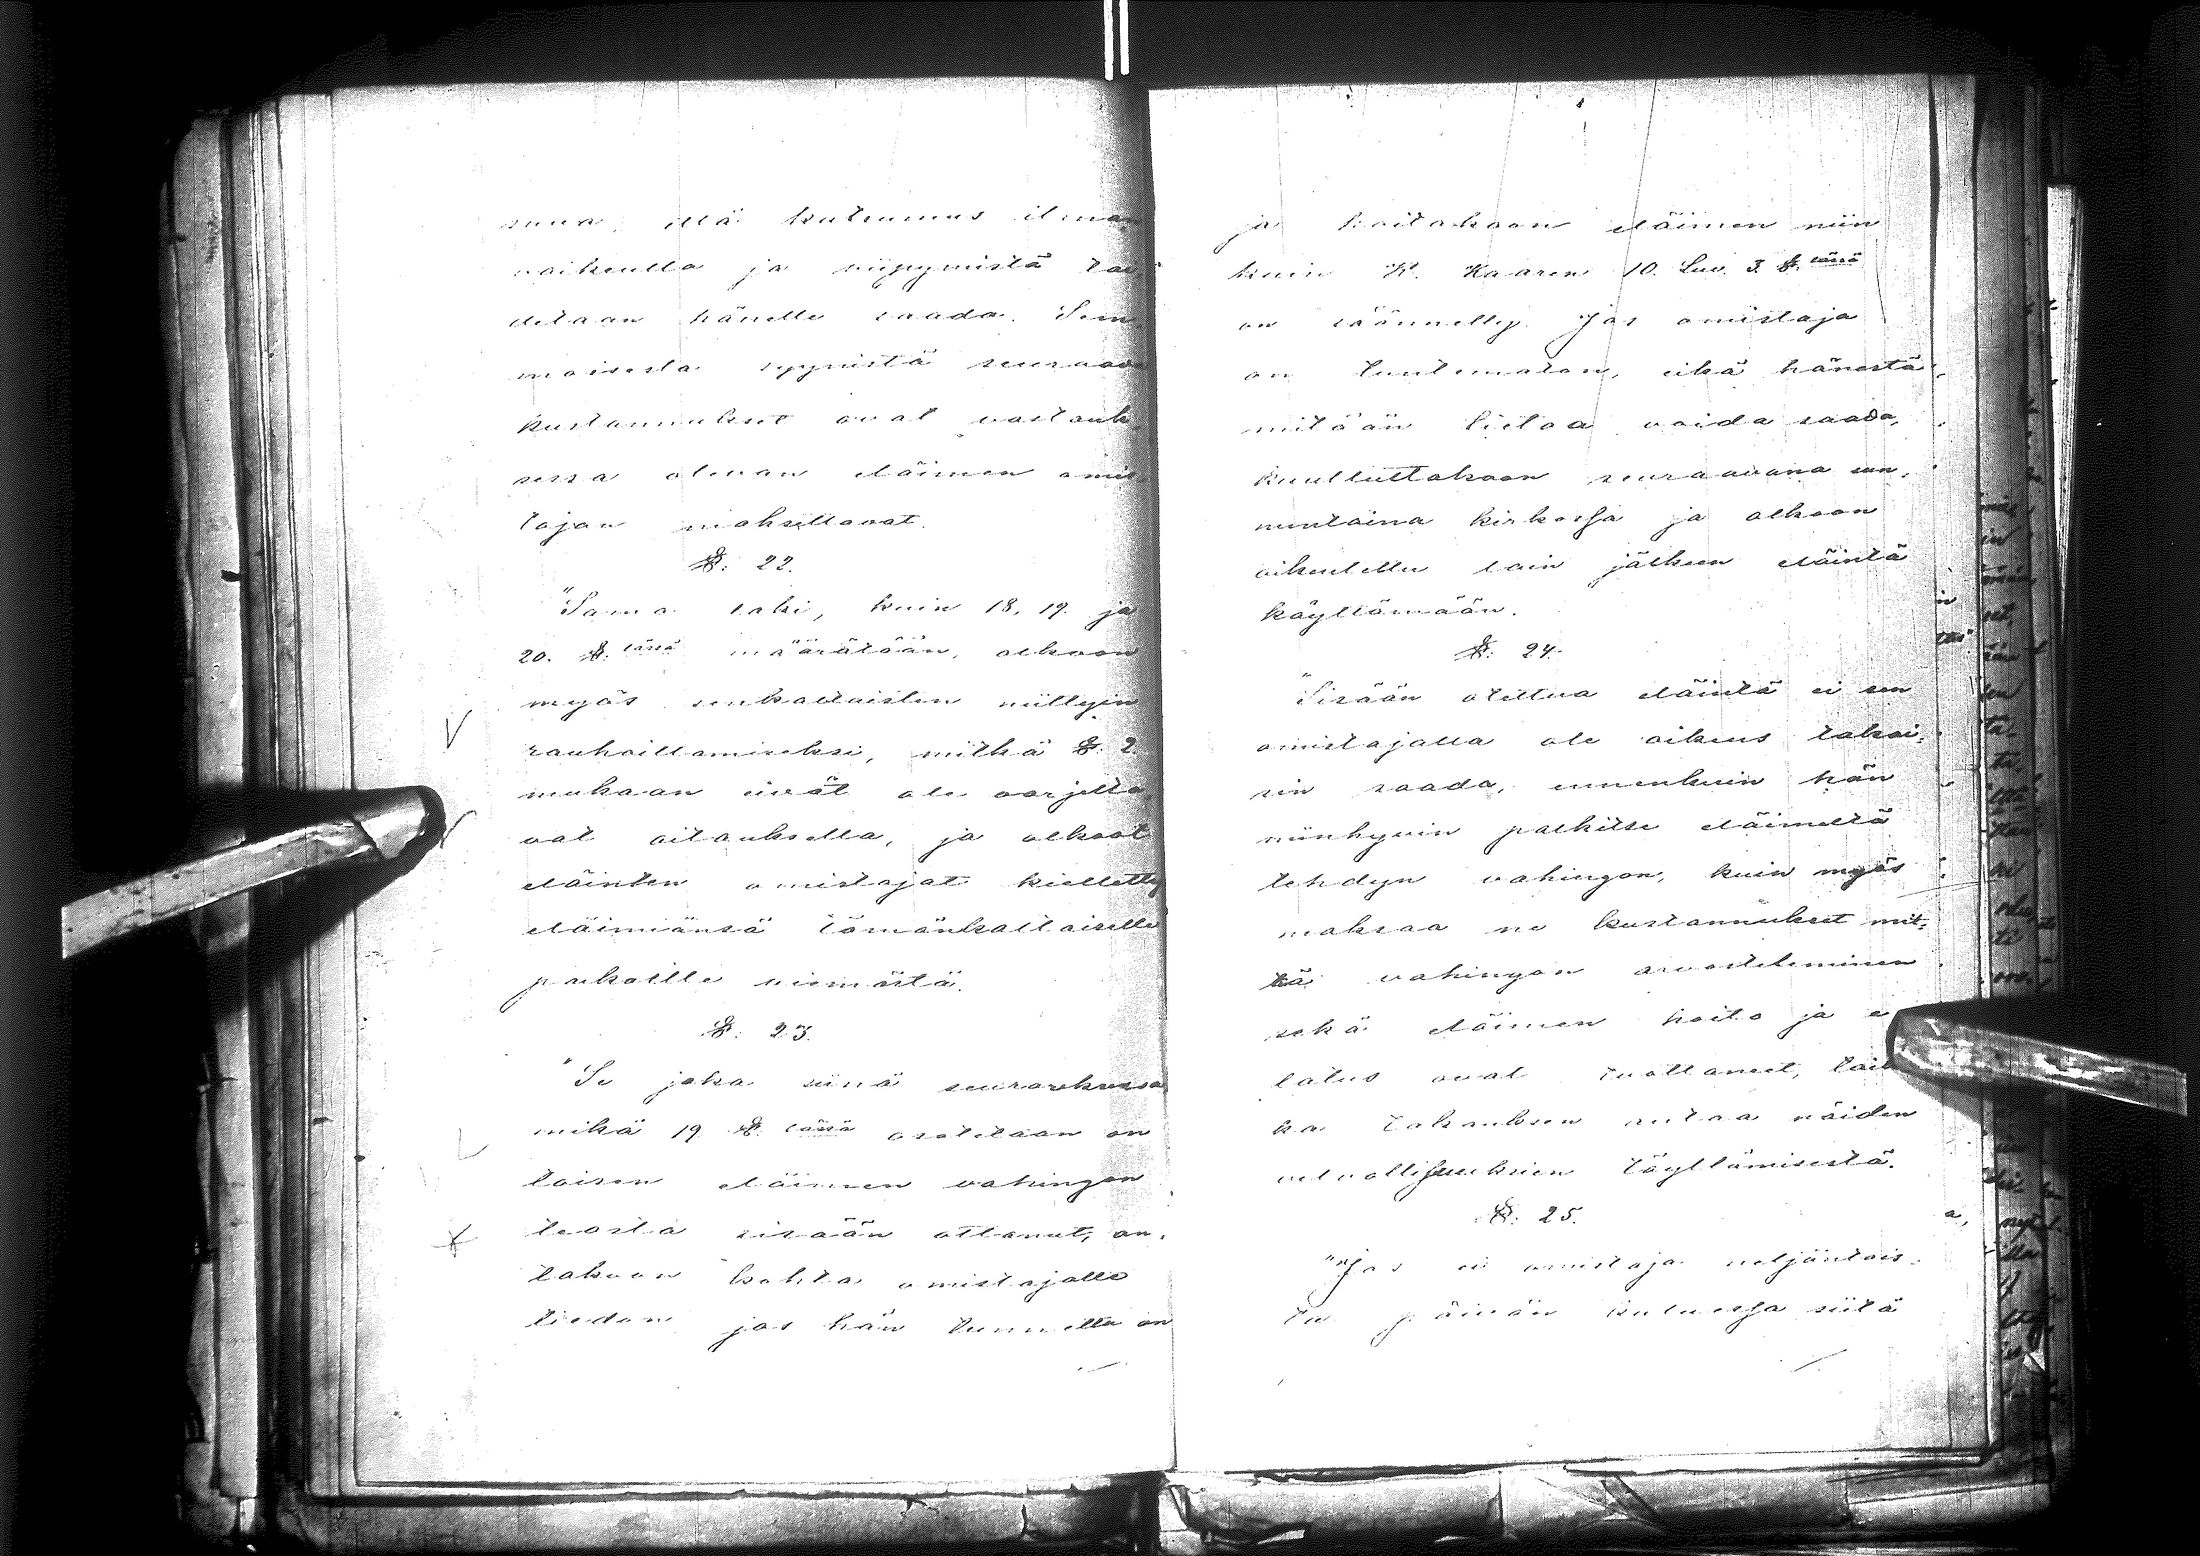 suna, että kutsumus ilman
vaikeutta ja viipymistä tai
detaan hänelle saada. Sem-
moisesta syynistä seuraava
kustannukset ovat vastauk-
sessa olevan eläimen omis-
tajan maksettavat.
§: 22.
"Sama laki, kuin 18, 19 ja
20. §. lässä määrätään, olkoon
myös senkaltaisten niittyin
rauhoittamiseksi, mitkä §: 2.
mukaan eivät ole varjelta-
vat aitauksella, ja olkoot
eläinten omistajat kielletty
eläimiänsä tämänkaltaisille
paikoille viemästä.
§: 23.
"Se joka siinä seurauksessa
mikä 19 §. lässä osotetaan on
toisen eläimen vahingon
teosta sisään ottanut, an-
takoon kohta omistajalle
tiedon jos hän tunnettu on
ja hoitakoon eläimen niin
kuin R. Kaaren 10. Luv. 3. §. lässä
on säännelty. Jos omistaja
on tuntematon, eikä hänestä
mitään tietoa voida saada,
kuulluttakoon seuraavana sun-
nuntaina kirkossa ja olkoon
oikeutettu sain jälkeen eläintä
käyttämään.
§: 24.
"Sisään otettua eläintä ei sen
omistajalla ole oikeus takai-
sin saada, ennenkuin hän
niinhyvin palkitse eläimeltä
tehdyn vahingon, kuin myös
maksaa ne kustannukset mit-
kä vahingon arvosteleminen
sekä eläimen hoito ja e
latus ovat tuottaneet, taik
ka takauksen antaa näiden
velvollisuuksien täyttämisestä.
§: 25.
"Jos ei omistaja neljäntois-
ta päivän kuluessa siitä